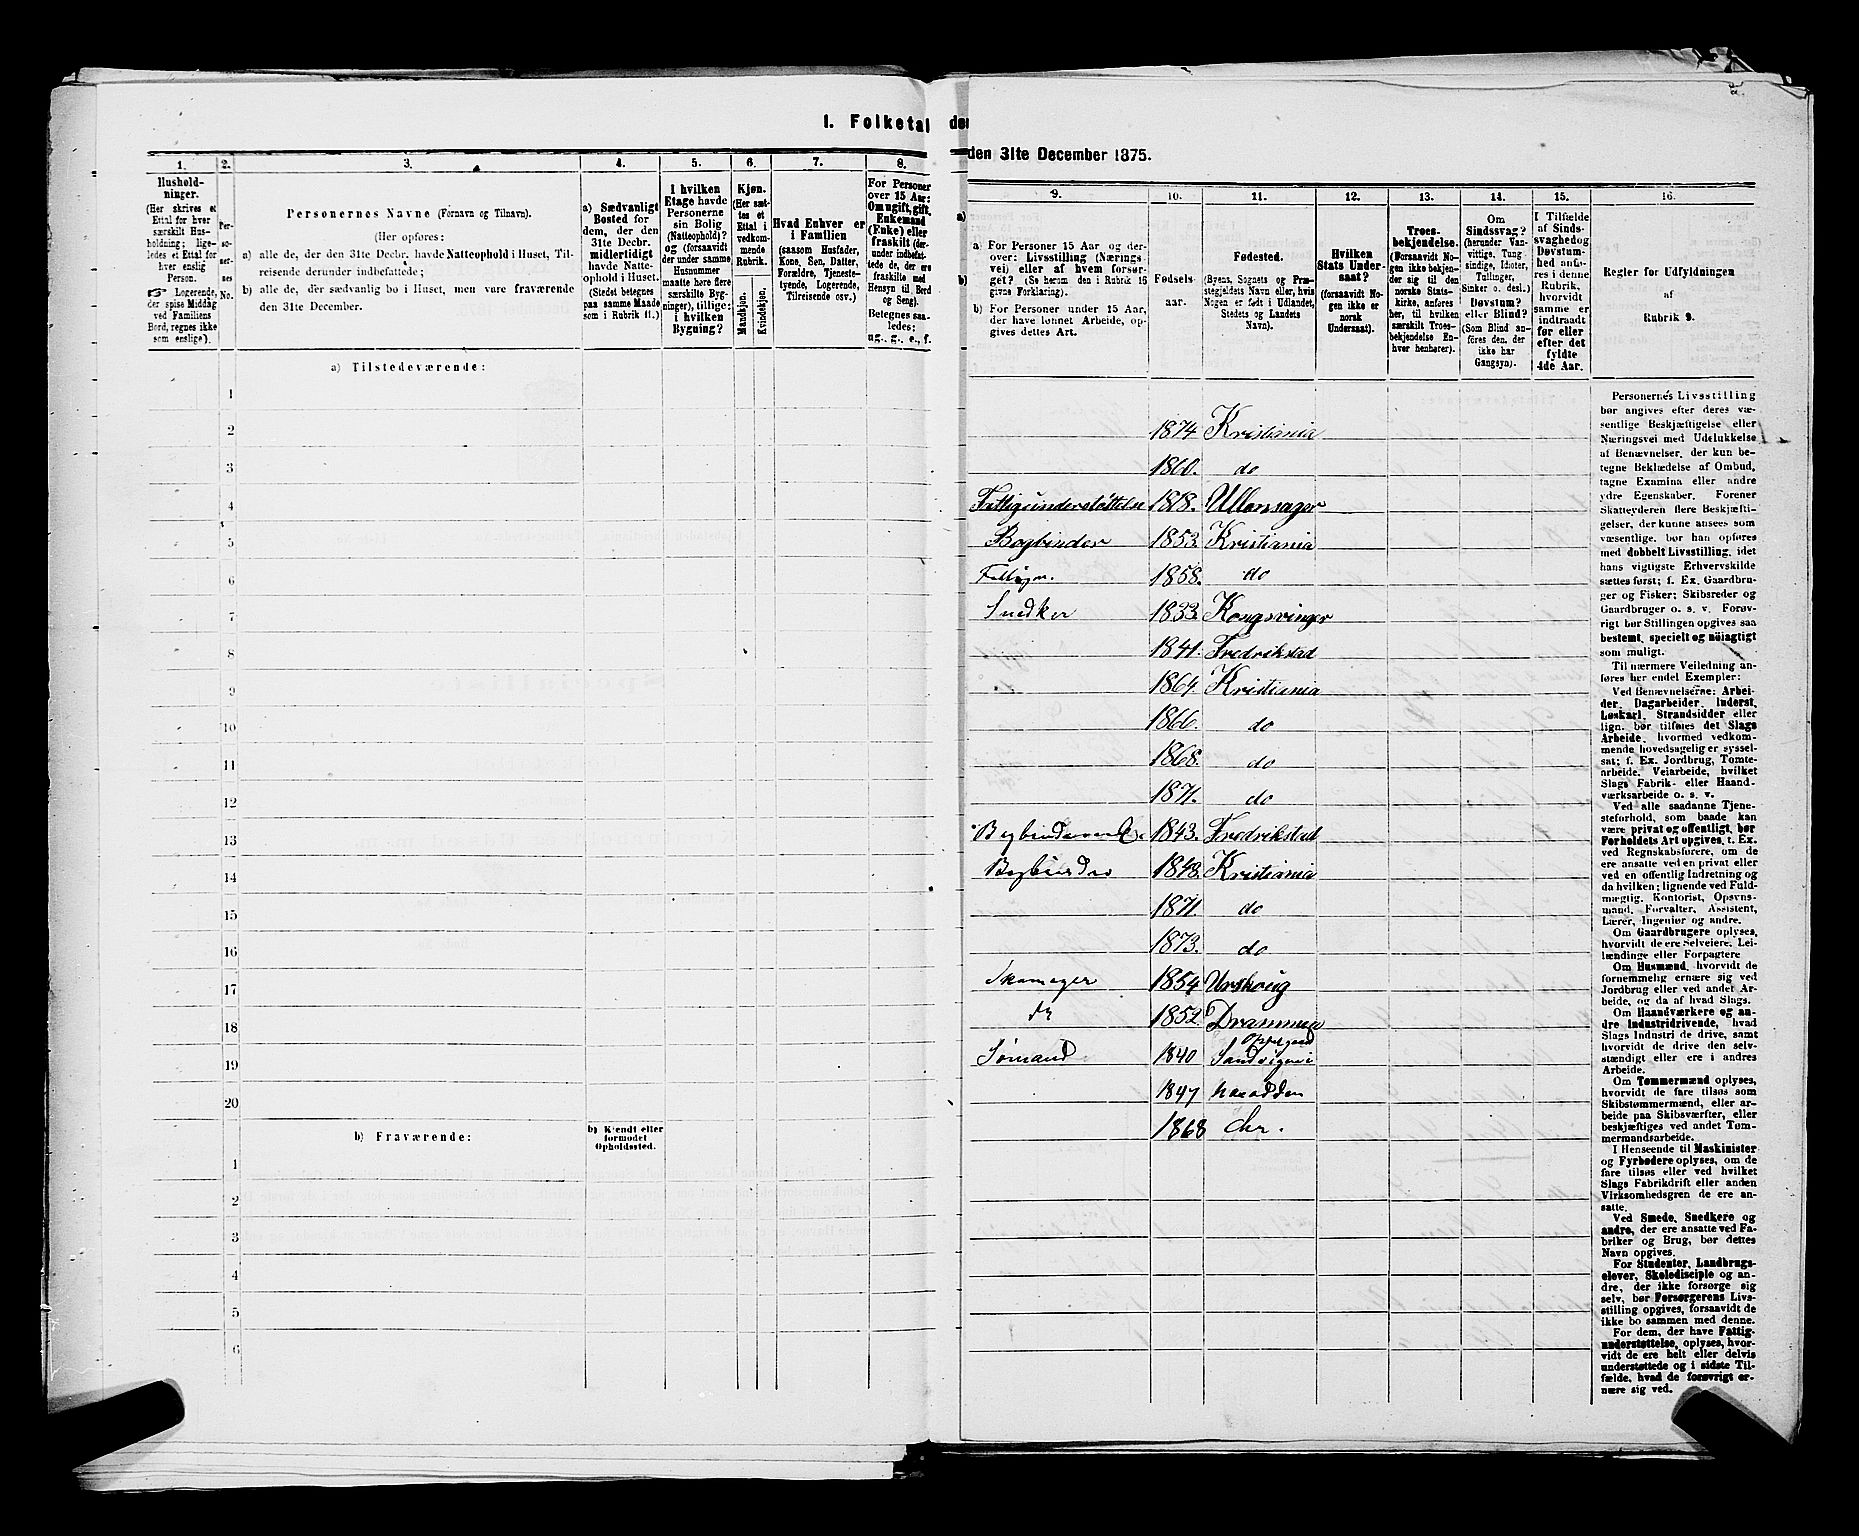 I. Folketal den
1.
2.
3.
4.
5.
6.
7.
8.
Hushold-
ninger.
(Her skrives et
Ettal for hver
særskilt Hus-
holdning; lige-
ledes et Ettal for
hver enslig
Person.
Logerende,
der spise Middag
ved Familiens
Bord, regnes ikke
som enslige).
Per-
so-
ner-
nes
No.
Personernes Navne (Fornavn og Tilnavn).
(Her opføres:
a) alle de, der den 31te Decbr. havde Natteophold i Huset, Til-
reisende derunder indbefattede;
b) alle de, der sædvanlig bo i Huset, men vare fraværende
den 31te December.
a) Sædvanligt
Bosted for
dem, der den
31te Decbr.
midlertidigt
havde Natte-
ophold i Huset.
(Stedet betegnes
paa samme Maade
som i Rubrik 11.)
I hvilken
Etage havde
Personerne
sin Bolig
(Natteophold)?
og (forsaavidt
der under samme
Husnummer
maatte høre flere
særskilte Byg-
ninger), tillige:
i hvilken
Bygning?
Kjøn.
(Her sæt-
tes et
Ettal i
vedkom-
mende
Rubrik.
Mandkjøn.
Kvindekjøn.
Hvad Enhver er
i Familien
(saasom Husfader,
Kone, Søn, Datter,
Forældre, Tjeneste-
tyende, Logerende,
Tilreisende osv.)
For Personer
over 15 Aar:
Om ugift, gift,
Enkemand
(Enke) eller
fraskilt (der-
under indbefat-
tede de, der ere
fraskilte med
Hensyn til Bord
og Seng).
Betegnes saa-
ledes:
ug., g., e., f.
a) Tilstedeværende:
1
2
3
4
5
6
7
8
9
10
11
12
13
14
15
16
17
18
19
20
b) Fraværende:
b) Kjendt eller
formodet
Opholdssted.
1
2
3
4
5
6
den 31te December 1875.
9.
10.
11.
12.
13.
14.
15.
16.
a) For Personer 15 Aar og der-
over: Livsstilling (Nærings-
vei) eller af hvem forsør-
get? (Se herom den i Rubrik 16
givne Forklaring).
b) For Personer under 15 Aar,
der have lønnet Arbeide, op-
gives dettes Art.
Fødsels-
aar.
Fødested.
(Byens, Sognets og Præ-
stegjeldets Navn eller, hvis
Nogen er født i Udlandet,
Stedets og Landets
Navn).
Hvilken
Stats Under-
saat?
(forsaavidt No-
gen ikke er
norsk
Undersaat).
Troes-
bekjendelse.
(Forsaavidt No-
gen ikke bekjen-
der sig til den
norske Stats-
kirke, anføres
her, til hvilken
særskilt Troes-
bekjendelse En-
hver henhører).
Om
Sindssvag?
(herunder Van-
vittige, Tung-
sindige, Idioter,
Tullinger,
Sinker o. desl.)
Døvstum?
eller Blind?
(Som Blind an-
føres den, der
ikke har
Gangsyn).
I Tilfælde
af Sinds-
svaghed og
Døvstum-
hed anfø-
res i denne
Rubrik,
hvorvidt
samme er
indtraadt
før eller
efter det
fyldte
4de Aar.
Regler for Udfyldningen
af
Rubrik 9.
1874 Kristiania
1860. do
Fattigunderstøttelse 1818. Ullensager
Bogbinder 1853. Kristiania
1858. do
Snedker 1833. Kongsvinger
1841. Fredrikstad
1864. Kristiania
1866. do
1868. do
1871. do
1843. Fredrikstad
1848. Kristiania
1871. do
1873. do
Skomager 1854 Urskoug
do 1852. Drammen
Sømand 1840
1847 Næsodden
1868 Chr.
Personernes Livsstilling
bør angives efter deres væ-
sentlige Beskjæftigelse eller
Næringsvei med Udelukkelse
af Benævnelser, der kun be-
tegne Beklædelse af Ombud,
tagne Examina eller andre
ydre Egenskaber. Forener
Skatteyderen flere Beskjæfti-
gelser, der kunne ansees som
væsentlige, bør han opføres
med dobbelt Livsstilling, idet
hans vigtigste Erhvervskilde
sættes først; f. Ex. Gaardbru-
ger og Fisker; Skibsreder og
Gaardbruger o. s. v. Forøv-
rigt bør Stillingen opgives saa
bestemt, specielt og nøiagtigt
som muligt.
Til nærmere Veiledning an-
føres her endel Exempler:
Ved Benævnelserne: Arbei-
der, Dagarbeider, Inderst,
Løskarl, Strandsidder eller
lign. bør tilføres det Slags
Arbeide, hvormed vedkom-
mende hovedsagelig er syssel-
sat; f. Ex. Jordbrug, Tomte-
arbeide, Veiarbeide, hvilket
Slags Fabrik- eller Haand-
værksarbeide o. s. v.
Ved alle saadanne Tjene-
steforhold, som baade kan
være privat og offentligt, bør
Forholdets Art opgives, t. Ex.
ved Regnskabsførere, om de
ere ansatte ved en privat eller
ved en offentlig Indretning og
da hvilken; lignende ved Fuld-
mægtig, Kontorist, Opsyns-
mand, Forvalter, Assistent,
Lærer, Ingeniør og andre.
Om Gaardbrugere oplyses,
hvorvidt de ere Selveiere, Lei-
lændinge eller Forpagtere
Om Husmænd, hvorvidt de
fornemmelig ernære sig ved
Jordbrug eller ved andet Ar-
beide, og da af hvad Slags.
Om Haandværkere og an-
dre Industridrivende, hvad
Slags Industri de drive, samt
hvorvidt de drive den selv-
stændigt eller ere i andres
Arbeide.
Om Tømmermænd oplyses,
hvorvidt de fare tilsøs som
Skibstømmermænd, eller ar-
beide paa Skibsværfter, eller
beskjæftiges ved andet Tøm-
mermandsarbeide.
I Henseende til Maskinister
og Fyrbødere oplyses, om de
fare tilsøs eller ved hvilket
Slags Fabrikdrift eller anden
Virksomhedsgren de ere an-
satte.
Ved Smede, Snedkere og
andre, der ere ansatte ved Fa-
briker og Brug, bør dettes
Navn opgives.
For Studenter, Landbrugs-
elever, Skoledisciple og an-
dre, der ikke forsørge sig
selv, bør Forsørgerens Livs-
stilling opgives, forsaavidt de
ikke bo sammen med denne.
For dem, der have Fattig-
understøttelse, oplyses, hvor-
vidt de ere helt eller delvis
understøttede og i sidste Til-
fælde, hvad de forøvrigt er-
nære sig ved.